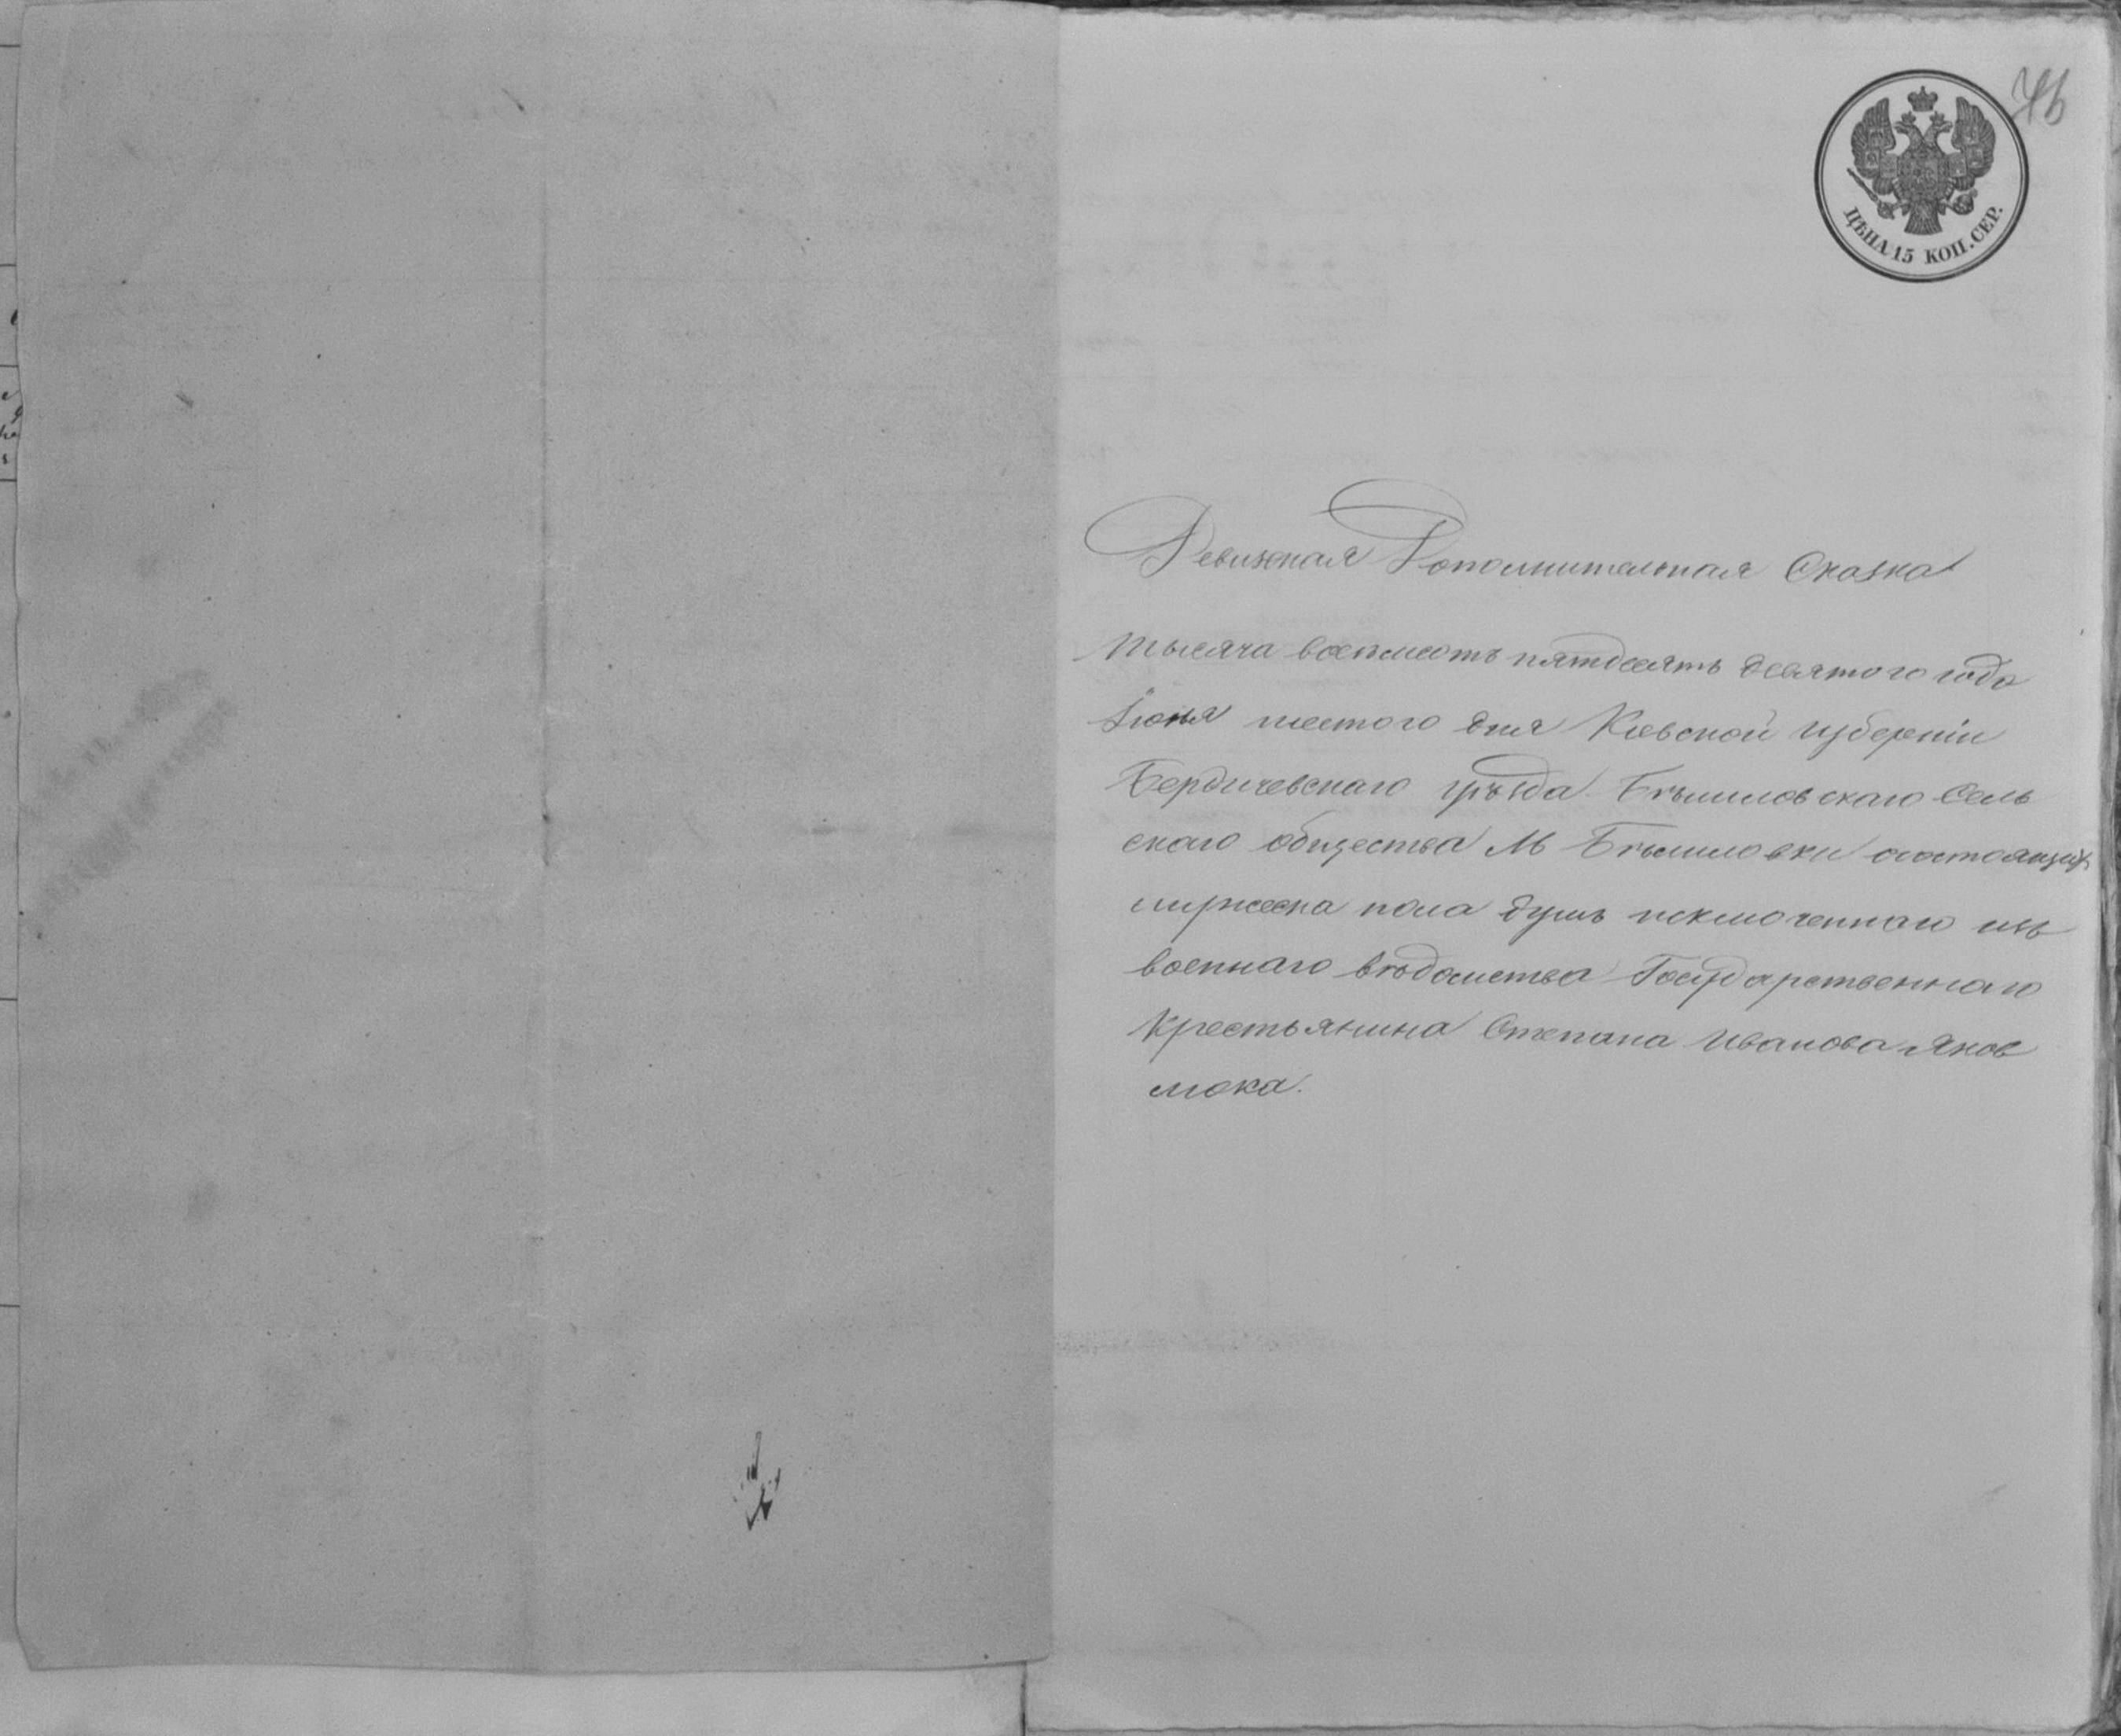 76
ЦѢНА 15 КОП. СЕР.
Ревизская Дополнительная Сказка
тысяча восемьсотъ пятдесятъ девятого года
Іюня шестого дня Кіевской губерніи
Бердичевскаго уѣзда Бѣлиловскаго Сель
скаго общества М Бѣлиловки состоящихъ
мужеска пола душъ исключеннаго изъ
военнаго вѣдомства Государственнаго
Крестьянина Степана Иванова Янов
люка.